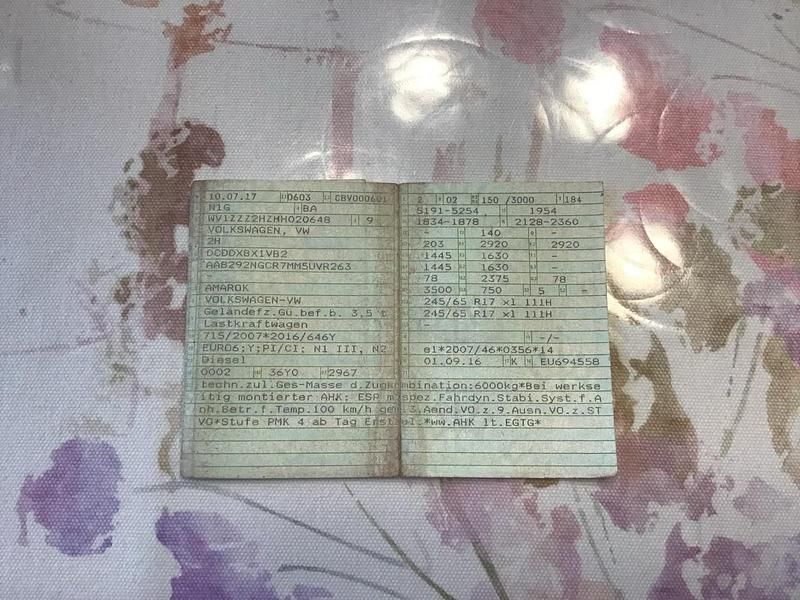 10.07.17 0603 CBV000601
N1G BA
WV1ZZZ2HZHH020648 9
VOLKSWAGEN, VW
2H
DCDDXBX1VB2
AAB292NGCR7MM5UVR263
-
AMAROK
VOLKSWAGEN-VW
Geländefz.Gü.bef.b. 3,5 t
Lastkraftwagen
715/2007*2016/646Y
EURO6;Y;PI/CI: N1 III, N2
Diesel
0002 36Y0 2967
2 02 150 /3000 184
5191-5254 1954
1834-1878 2128-2360
- 140 -
203 2920 2920
1445 1630 -
1445 1630 -
78 2375 78
3500 750 5 -
245/65 R17 xl 111H
245/65 R17 xl 111H
-
-/-
e1*2007/46*0356*14
01.09.16 K EU694558
techn.zul.Ges-Masse d.Zugkombination:6000kg*Bei werkse
itig montierter AHK: ESP m.spez.Fahrdyn.Stabi.Syst.f.A
nh.Betr.f.Temp.100 km/h gem.3.Aend.VO.z.9.Ausn.VO.z.ST
VO*Stufe PMK 4 ab Tag Erstzul.*ww.AHK lt.EGTG*